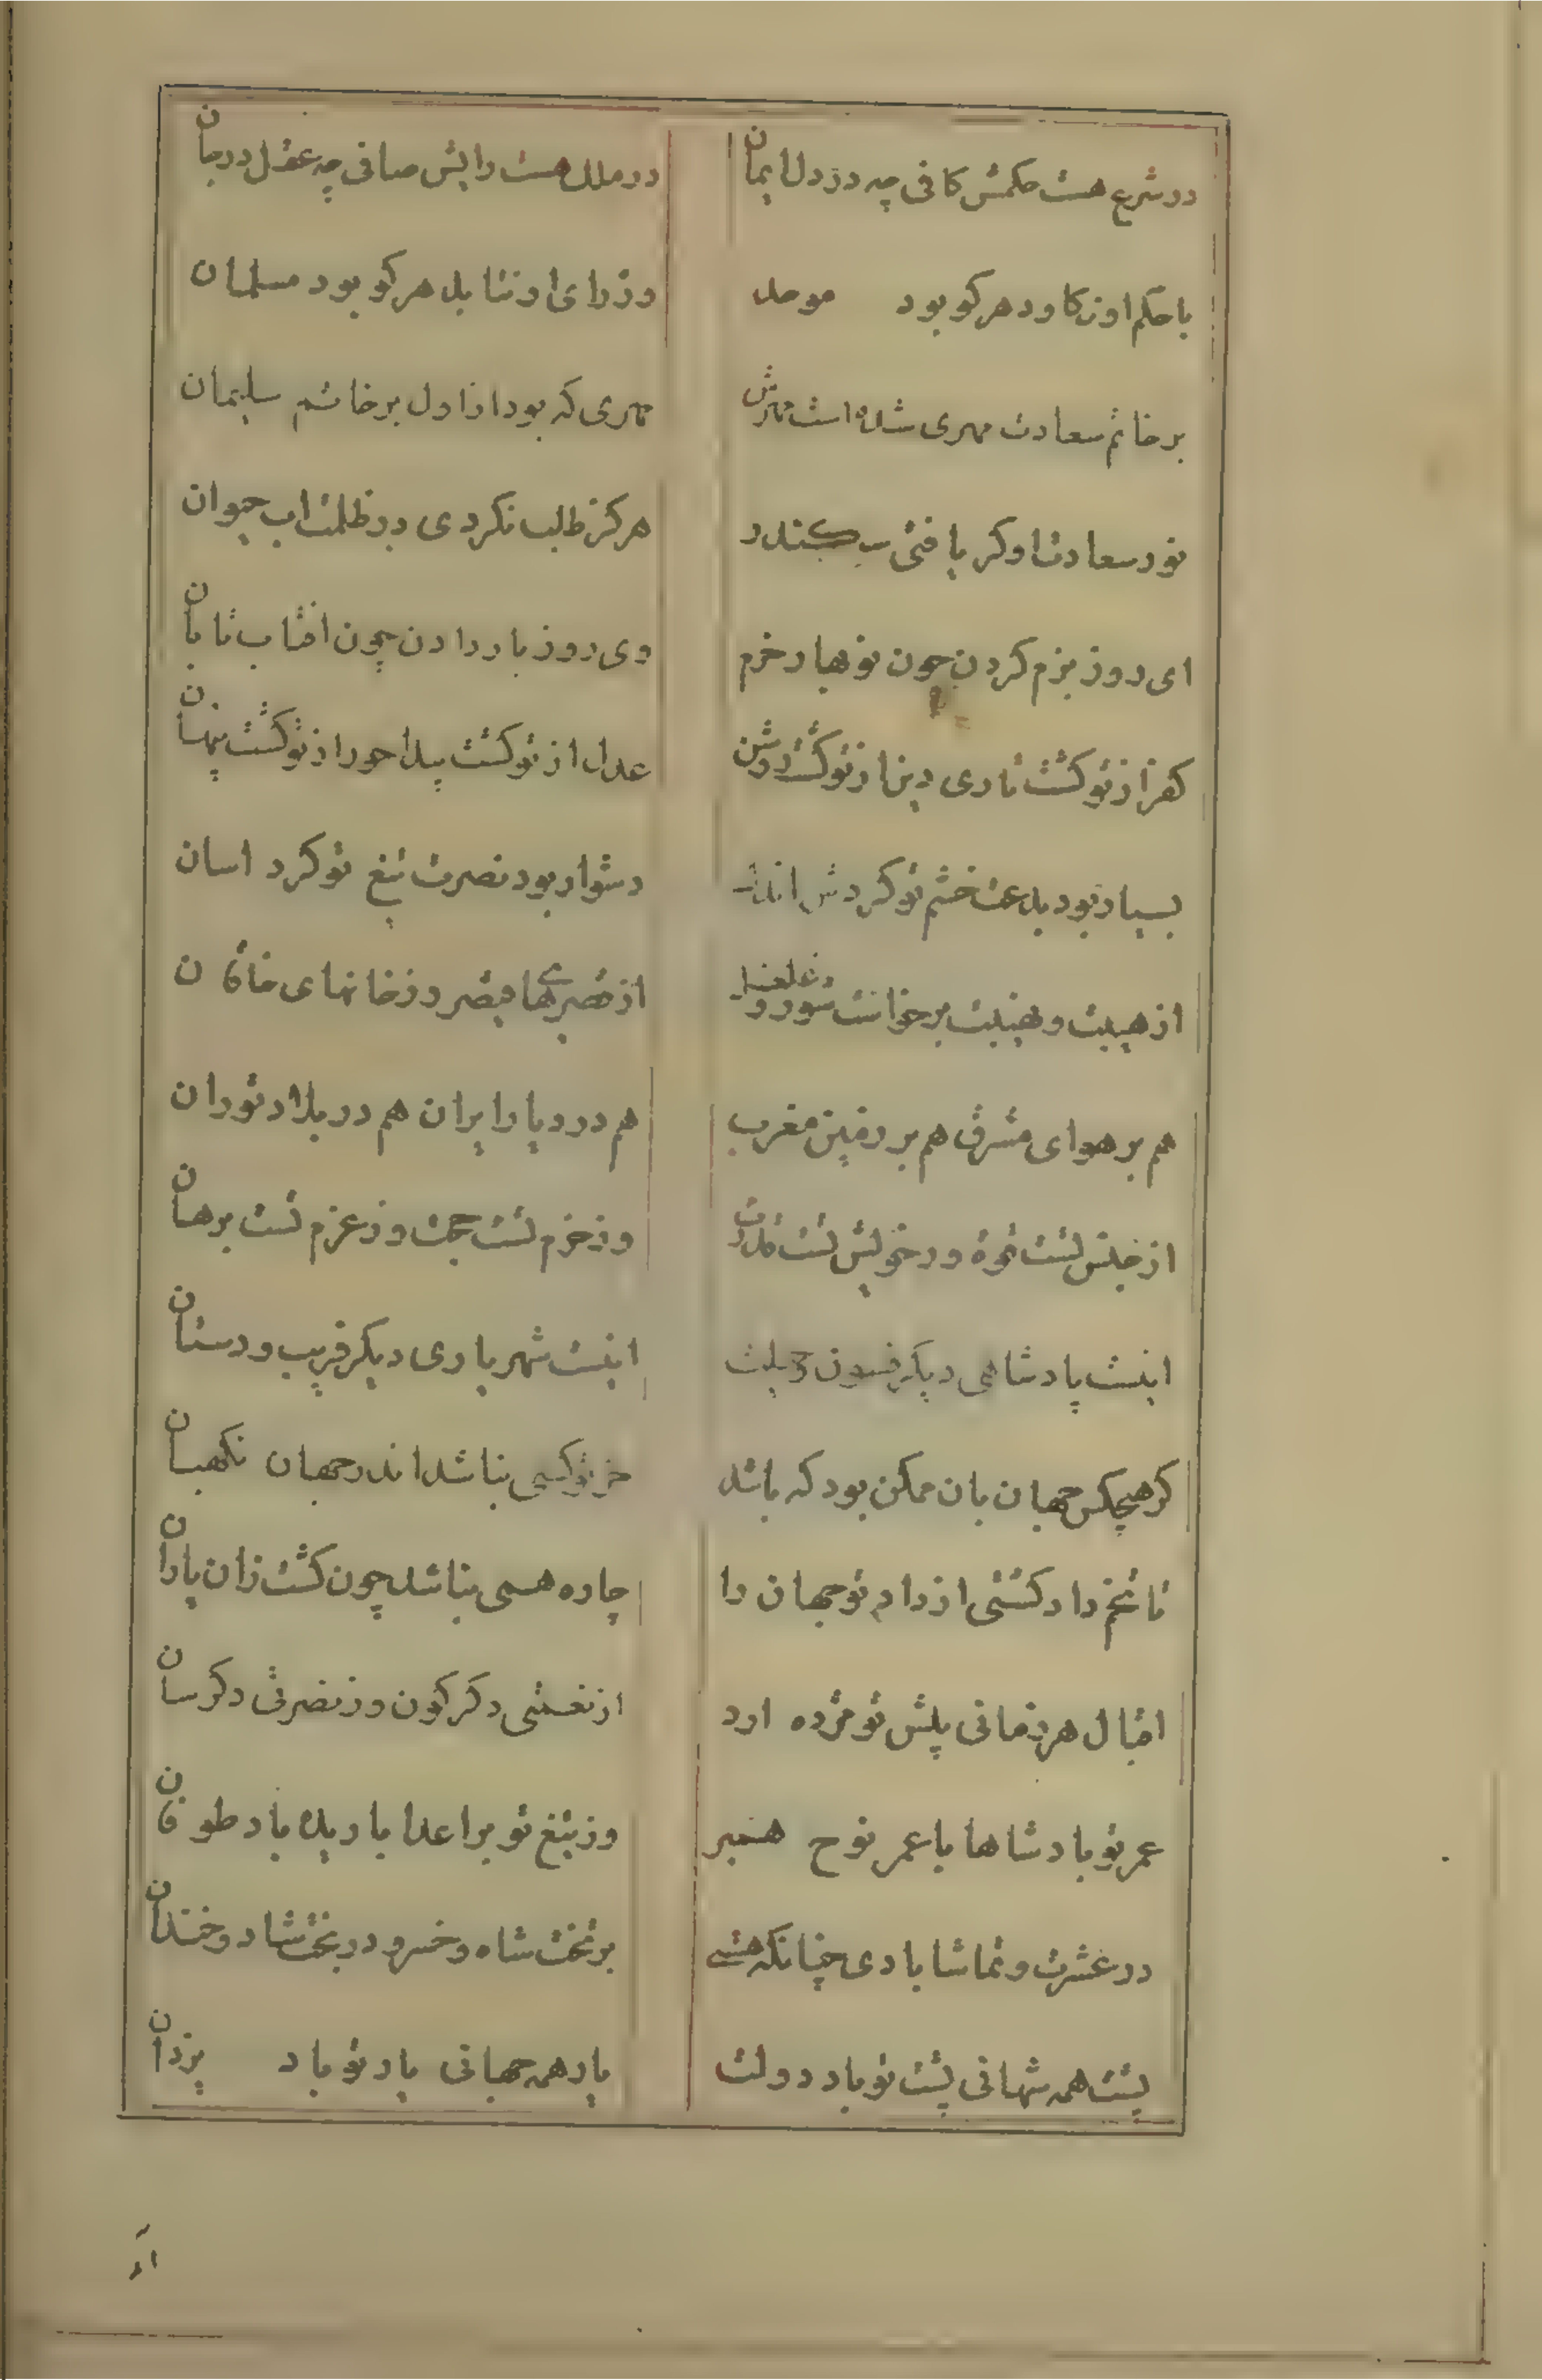 در شرع هست حکمش کافی چه در دل ایمان
در ملک هست رایش صافی چه عقل در جان
با حکم او نکاود هر کو بود موحد
وز رای او نتابد هر کو بود مسلمان
بر خاتم سعادت مهری شده است مهرش
مهری که بود از اول بر خاتم سلیمان
نور سعادت او کر یافتی سکندر
هرکز طلب نکردی در ظلمت اب حیوان
ای روز بزم کردن چون نوبهار خرم
وی روز بار دادن چون افتاب تابان
کفر از تو کشت تاری دین از تو کشت روشن
عدل از تو کشت پیدا جور از تو کشت پنهان
بسیار بود بدعت خشم تو کردش اندک
دشوار بود نصرت تیغ تو کرد اسان
از هیبت و نهیبت برخواست شور و غلغل
از قصرهای قیصر وز خانهای خاقان
هم بر هوای مشرق هم بر زمین مغرب
هم در دیار ایران هم در بلاد توران
از جنبش تست قوة ور خویش تست قدرت
وز حزم تست حجت وز عزم تست برهان
اینست پادشاهی دیکر فسون و حیلت
اینست شهریاری دیکر فریب و دستان
کر هیچکس جهان بان ممکن بود که باشد
جز تو کسی نباشد اندر جهان نکهبان
تا تخم داد کشتی از داد تو جهان را
چاره همی نباشد چون کشت را ز باران
اقبال هر زمانی پیش تو مژده ارد
از نعمتی دکر کون وز نصرتی دکر سان
عمر تو پادشاها با عمر نوح همبر
وز تیغ تو بر اعدا باریده باد طوفان
در عشرت و تماشا بادی چنانکه هستی
بر تخت شاه و خسرو در بخت شاد و خندان
پشت همه شهانی پشت تو باد دولت
یار همه جهانی یار تو باد یزدان